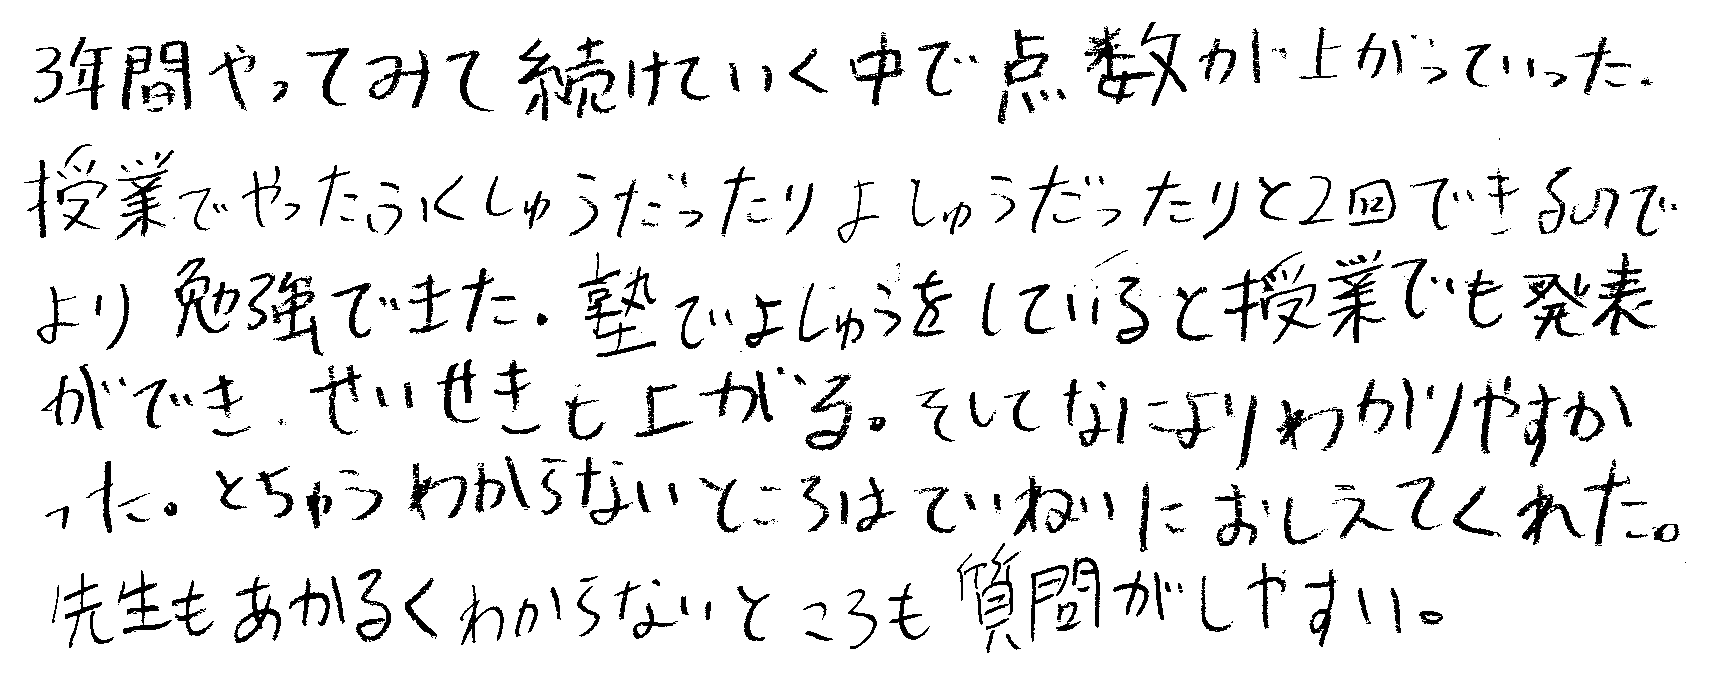 3年間やってみて続けていく中で点数が上がっていった.
授業でやったふくしゅうだったりよしゅうだったりと2回できるので
より勉強できた.塾でよしゅうをしていると授業でも発表
ができ、せいせきも上がる。そしてなによりわかりやすか
った。とちゅうわからないところはていねいにおしえてくれた。
先生もあかるくわからないところも質問がしやすい。